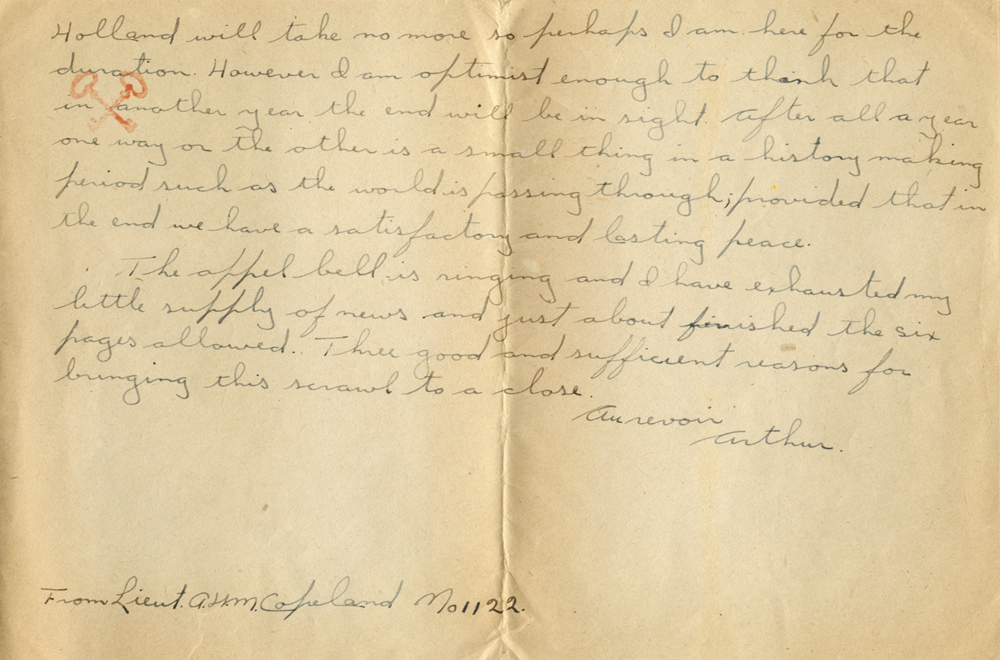 Holland will take no more so perhaps I am here for the
duration. However I am optimist enough to think that
in another year the end will be in sight. After all a year
one way or the other is a small thing in a history making
period such as the world is passing through; provided that in
the end we have a satisfactory and lasting peace.
The appel bell is ringing and I have exhausted my
little supply of news and just about finished the six
pages allowed. Three good and sufficient reasons for
bringing this scrawl to a close.
Au revoir
Arthur.
From Lieut. A.H.M. Copeland No 1122.